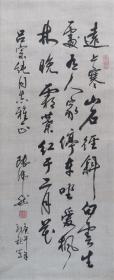 遠上寒山石徑斜白雲生
處有人家停車坐愛楓
林晚霜葉红于二月花
吕宗纯同志雅正